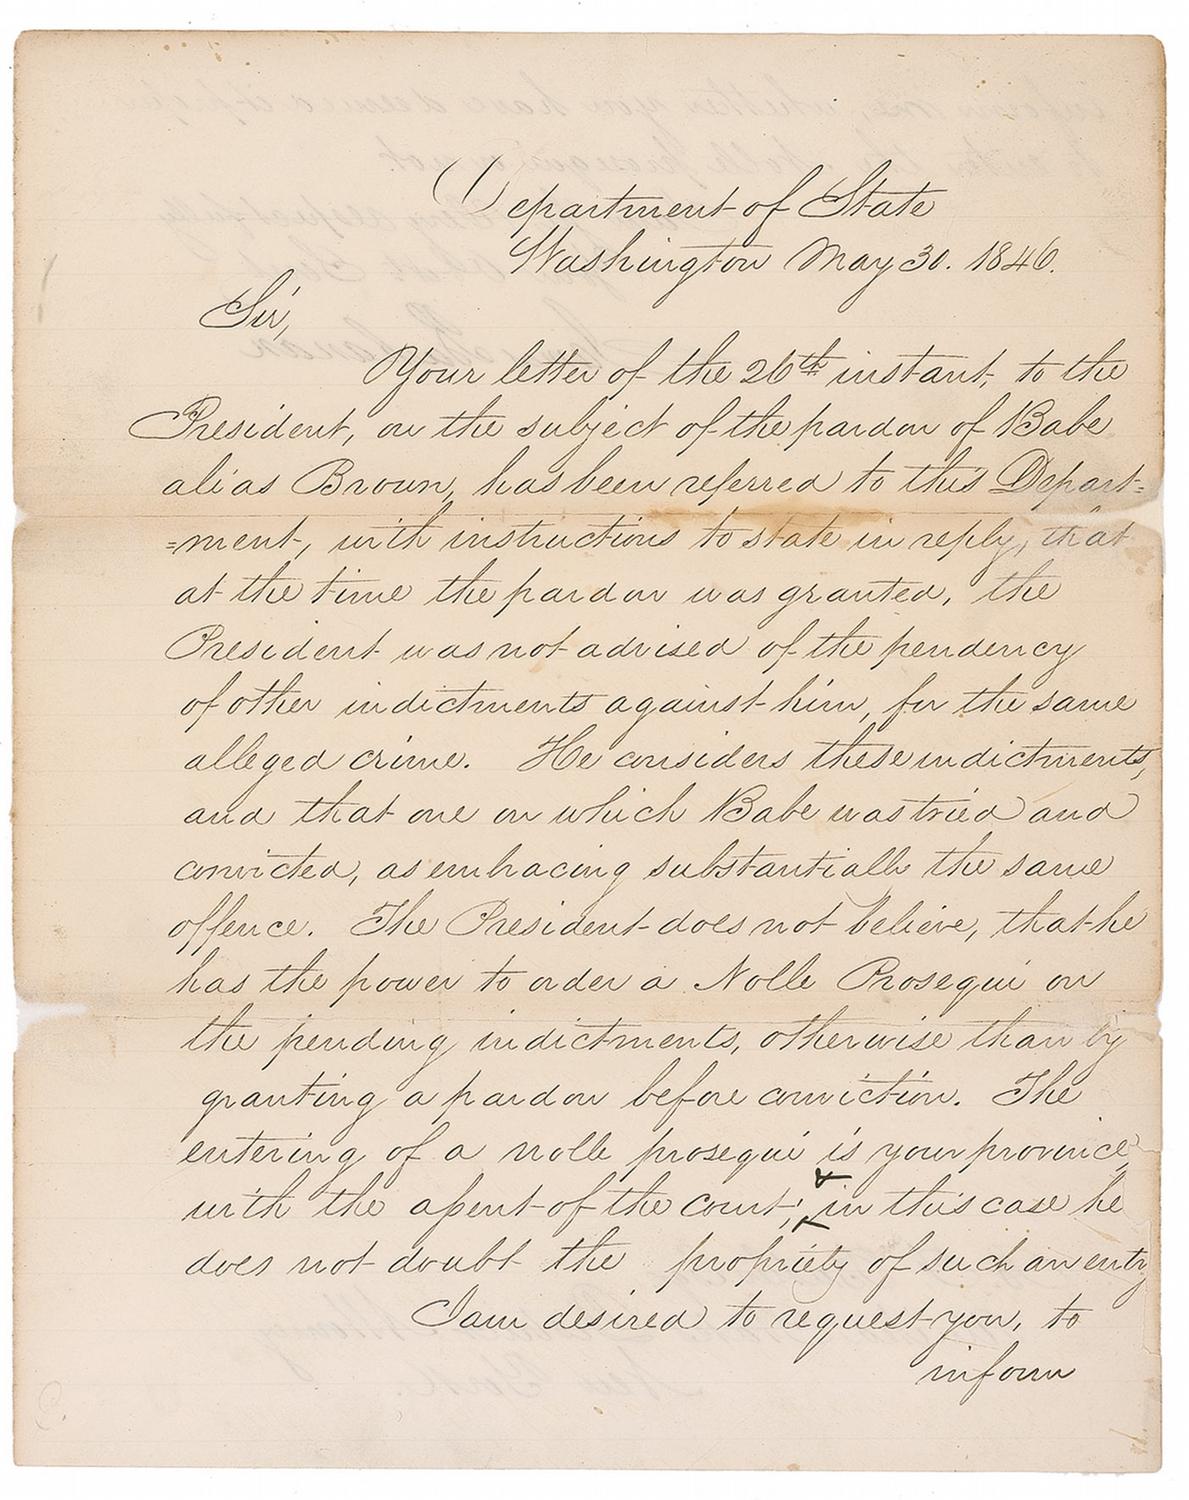 Department of State
Washington May 30. 1846.
Sir,
Your letter of the 26th instant, to the
President, on the subject of the pardon of Babe
alias Brown, has been referred to this Depart=
=ment, with instructions to state in reply, that
at the time the pardon was granted, the
President was not advised of the pendency
of other indictments against him, for the same
alleged crime. He considers these indictments,
and that one on which Babe was tried and
convicted, as embracing substantially the same
offence. The President does not believe, that he
has the power to order a Nolle Prosequi on
the pending indictments, otherwise than by
granting a pardon before conviction. The
entering of a nolle prosequi is your province,
with the assent of the court; in this case he
does not doubt the propriety of such an entry
I am desired to request you, to
inform